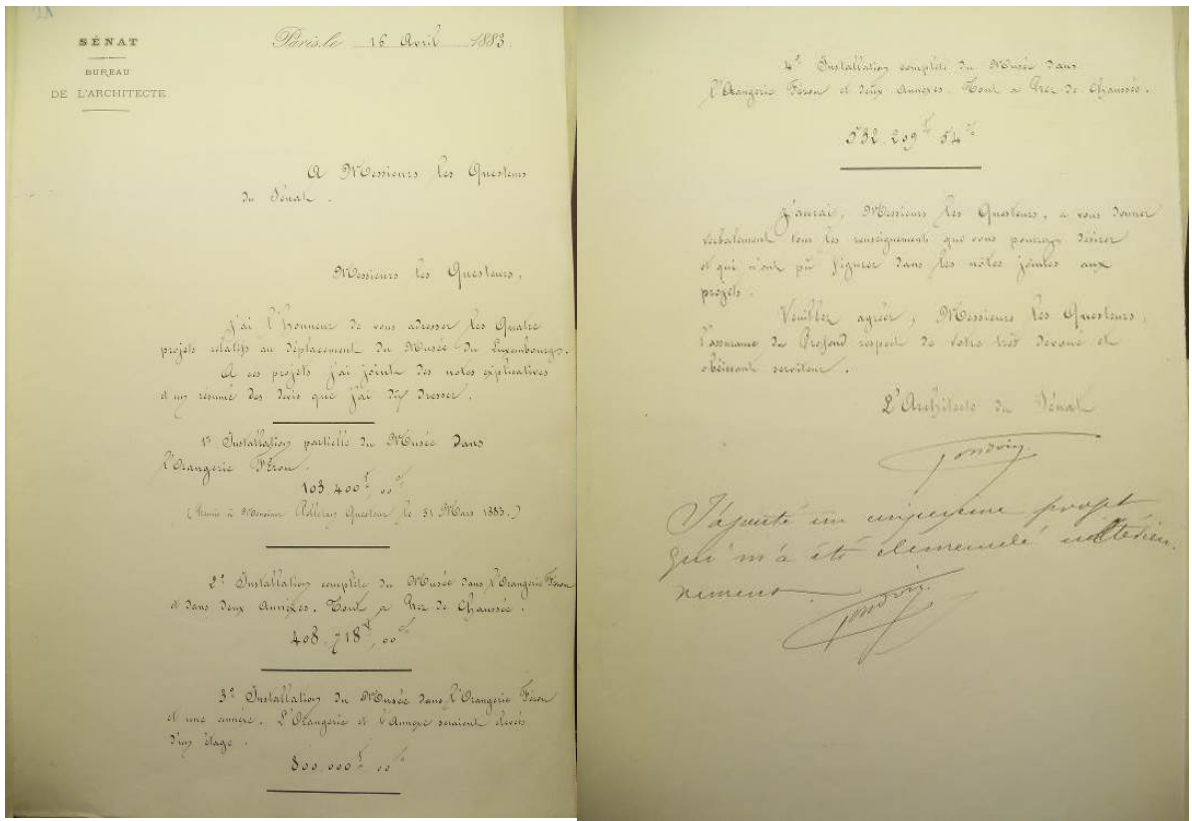 SÉNAT
BUREAU
DE L'ARCHITECTE
Paris, le 16 Avril 1883.
A Messieurs les Questeurs
du Sénat.
Messieurs les Questeurs,
J'ai l'honneur de vous adresser les Quatre
projets relatifs au déplacement du Musée du Luxembourg.
A ces projets j'ai joint des notes explicatives
et un résumé des devis que j'ai dû dresser.
1º Installation partielle du Musée dans
l'Orangerie Féron.
103.400f,00c
( à Monsieur Questeur le 31 Mars 1883.)
2º Installation complète du Musée dans l'Orangerie Féron
et dans deux Annexes. Tout à Rez de Chaussée.
408.718f,00c
3º Installation du Musée dans l'Orangerie Féron
et une annexe. L'Orangerie et l'Annexe seraient élevés
d'un étage.
800.000f 00c
4º Installation complète du Musée dans
l'Orangerie Féron et deux Annexes. Tout à Rez de Chaussée.
532.209f 54c
J'aurai, Messieurs les Questeurs, a vous donner
verbalement tous les renseignements que vous pourrez désirer
et qui n'ont pû figurer dans les nôtes jointes aux
projets.
Veuillez agréer, Messieurs les Questeurs,
l'assurance du Profond respect de votre très dévoué et
obéissant serviteur.
L'Architecte du Sénat
Gondoin
J'ajoute un cinquième projet
qui m'a été demandé

Gondoin